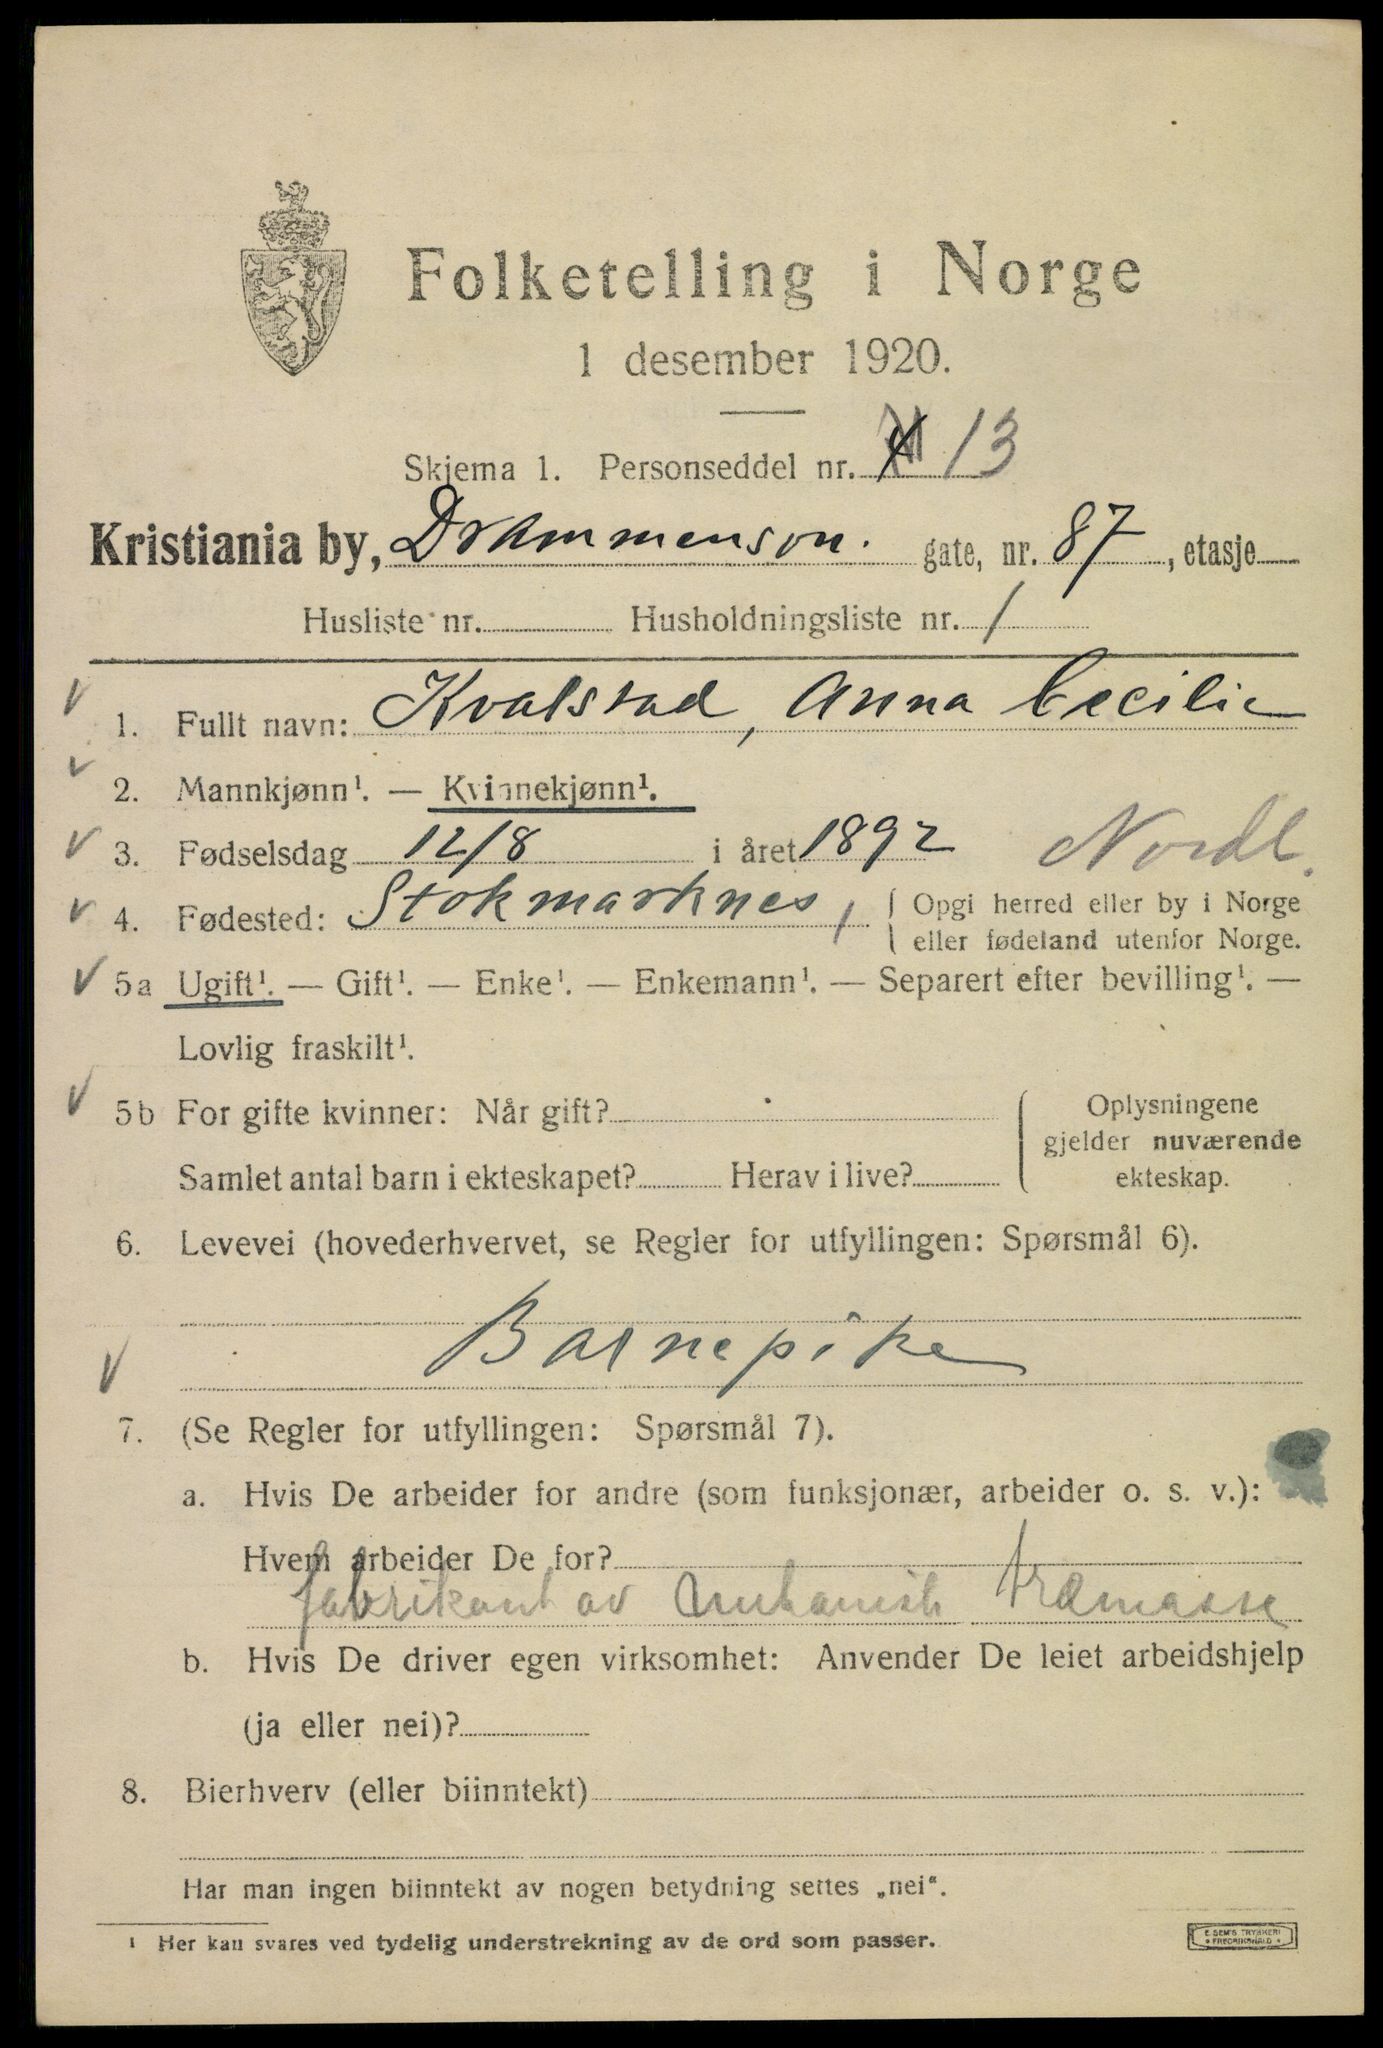 Folketelling i Norge
1 desember 1920.
Skjema 1. Personseddel nr. 13
Kristiania by, Drammensvn. gate, nr. 87, etasje
Husliste nr. Husholdningsliste nr. 1
1. Fullt navn: Kvalstad, Anna Cecilie
2. Mannkjønn¹. — Kvinnekjønn¹.
3. Fødselsdag 12/8 i året 1892 Nordl.
4. Fødested: Stokmarknes, Opgi herred eller by i Norge
eller fødeland utenfor Norge.
5a Ugift¹. — Gift¹. — Enke¹. — Enkemann¹. — Separert efter bevilling¹. —
Lovlig fraskilt¹.
5b For gifte kvinner: Når gift?
Samlet antal barn i ekteskapet? Herav i live?
Oplysningene
gjelder nuværende
ekteskap.
6. Levevei (hovederhvervet, se Regler for utfyllingen: Spørsmål 6).
Barnepike
7. (Se Regler for utfyllingen: Spørsmål 7).
a. Hvis De arbeider for andre (som funksjonær, arbeider o. s. v.):
Hvem arbeider De for?
fabrikant av træmasse
b. Hvis De driver egen virksomhet: Anvender De leiet arbeidshjelp
(ja eller nei)?
8. Bierhverv (eller biinntekt)
Har man ingen biinntekt av nogen betydning settes „nei“.
¹ Her kan svares ved tydelig understrekning av de ord som passer.
E. SEM'S TRYKKERI
FREDRIKSHALD